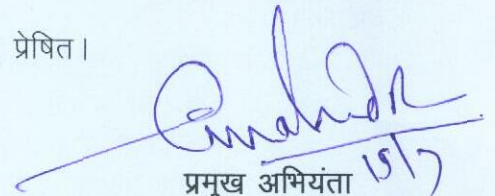 प्रेषित।
प्रमुख अभियंता 15/7